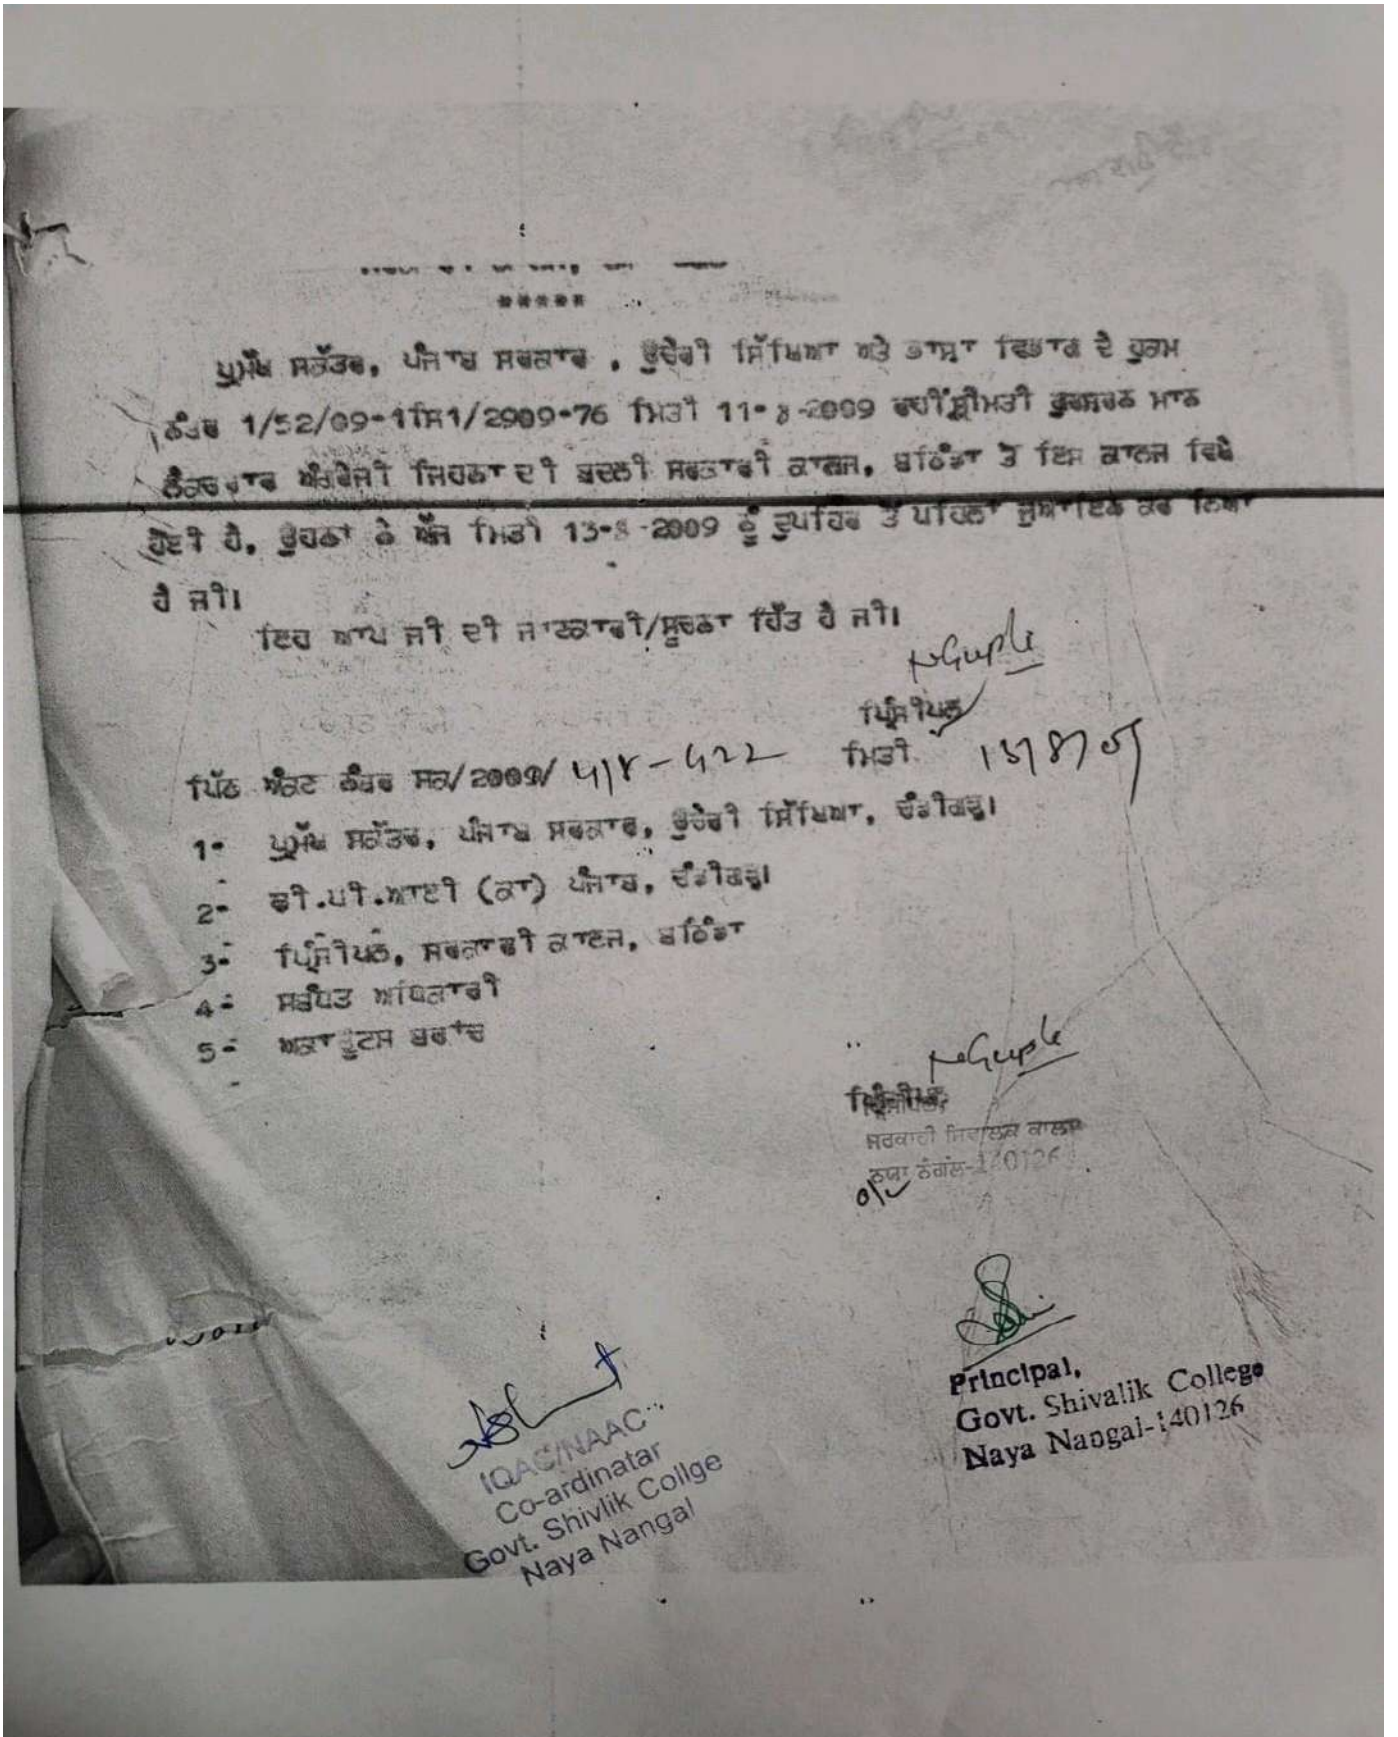 *****
ਪ੍ਰਮੁੱਖ ਸਕੱਤਰ, ਪੰਜਾਬ ਸਰਕਾਰ , ਉਚੇਰੀ ਸਿੱਖਿਆ ਅਤੇ ਭਾਸ਼ਾ ਵਿਭਾਗ ਦੇ ਹੁਕਮ
ਨੰਬਰ 1/52/09-1ਸਿ1/2909-76 ਮਿਤੀ 11-8-2009 ਰਾਹੀਂ ਸ਼੍ਰੀਮਤੀ ਗੁਰਸ਼ਰਨ ਮਾਨ
ਲੈਕਚਰਾਰ ਅੰਗਰੇਜੀ ਜਿਹਨਾ ਦੀ ਬਦਲੀ ਸਰਕਾਰੀ ਕਾਲਜ, ਬਠਿੰਡਾ ਤੋ ਇਸ ਕਾਲਜ ਵਿਖੇ
ਹੋਈ ਹੈ, ਉਹਨਾਂ ਨੇ ਅੱਜ ਮਿਤੀ 13-8-2009 ਨੂੰ ਦੁਪਹਿਰ ਤੋਂ ਪਹਿਲਾਂ ਜੁਆਇਨ ਕਰ ਲਿਆ
ਹੈ ਜੀ।
ਇਹ ਆਪ ਜੀ ਦੀ ਜਾਣਕਾਰੀ/ਸੂਚਨਾ ਹਿੱਤ ਹੈ ਜੀ।
NGupta
ਪ੍ਰਿੰਸੀਪਲ
ਪਿੱਠ ਅੰਕਣ ਨੰਬਰ ਸਕ/2009/ 418-422 ਮਿਤੀ 13/8/09
1- ਪ੍ਰਮੁੱਖ ਸਕੱਤਰ, ਪੰਜਾਬ ਸਰਕਾਰ, ਉਚੇਰੀ ਸਿੱਖਿਆ, ਚੰਡੀਗੜ੍ਹ।
2- ਡੀ.ਪੀ.ਆਈ (ਕਾ) ਪੰਜਾਬ, ਚੰਡੀਗੜ੍ਹ।
3- ਪ੍ਰਿੰਸੀਪਲ, ਸਰਕਾਰੀ ਕਾਲਜ, ਬਠਿੰਡਾ
4- ਸਬੰਧਤ ਅਧਿਕਾਰੀ
5- ਅਕਾਊਂਟਸ ਬਰਾਂਚ
NGupta
ਪ੍ਰਿੰਸੀਪਲ,
ਸਰਕਾਰੀ ਸਿਵਾਲਕ ਕਾਲਜ
ਨਯਾ ਨੰਗਲ-140126
Principal,
Govt. Shivalik College
Naya Nangal-140126
IQAC/NAAC
Co-ardinatar
Govt. Shivlik Collge
Naya Nangal